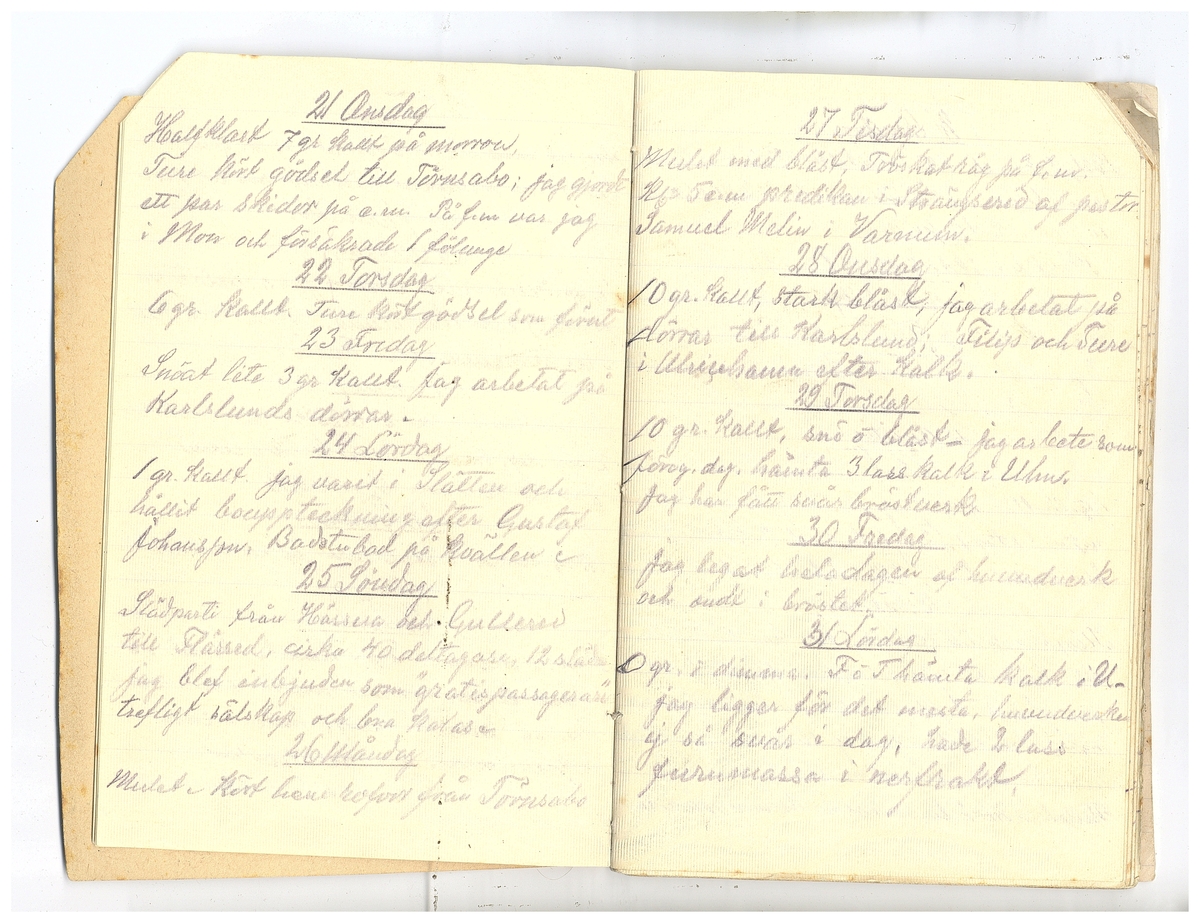 21 Onsdag
Halfklart 7 gr kallt på morron,
Ture kört gödsel till Törnsabo; jag gjorde
ett par skidor på e.m. På f.m var jag
i Mon och försäkrade 1 fölunge
22 Torsdag
6 gr. kallt. Ture kört gödsel som förut
23 Fredag
Snöat lite 3 gr kallt. Jag arbetat på
Karlslunds dörrar.
24 Lördag
1 gr. kallt jag varit i Slätten och
hållit bouppteckning efter Gustaf
Johansson. Badstubad på kvällen
25 Söndag
Slädparti från Hössna och Gullered
till Flässed, cirka 40 deltagare, 12 slädar
jag blef inbjuden som "gratispassagerare"
trefligt sälskap och bra kalas
26 Måndag
Mulet Kört hem rofvor från Törnsabo
27 Tisdag
Mulet med blåst, Tröskat råg på f.m.
Kl 5 e.m predikan i Strängsered af pastor
Samuel Melin i Varnum.
28 Onsdag
10 gr. kallt, stark blåst, jag arbetat på
dörrar till Karlslund; Filip och Ture
i Ulricehamn efter kalk.
29 Torsdag
10 gr. kallt, snö o blåst – jag arbete som
förog. dag. hämta 3 lass kalk i Uhn.
Jag har fått svår bröstverk
30 Fredag
Jag legat hela dagen af huvudverk
och ondt i bröstet.
31 Lördag
0 gr. o dimma. F o T hämta kalk i U-
jag ligger för det mesta, huvudverken
ej så svår i dag, hade 2 lass
furumassa i nerfrakt.